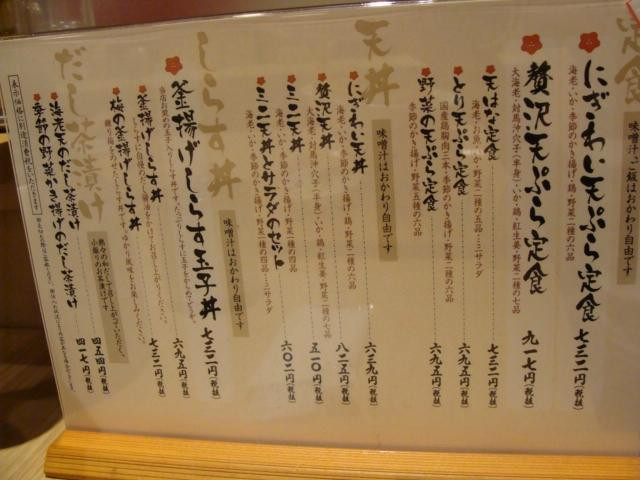 定食
味噌汁・ご飯はおかわり自由です
にぎわい天ぷら定食 七三二円(税抜)
海老・いか・季節のかき揚げ・鶏・野菜二種の六品
贅沢天ぷら定食 九一七円(税抜)
大海老・対馬沖穴子(半身)・いか・鶏・紅生姜・野菜二種の七品
天はな定食 七三二円(税抜)
海老・お魚・いか・野菜二種の五品・ミニサラダ
とり天ぷら定食 六九五円(税抜)
国産鶏胸肉三本・季節のかき揚げ・野菜二種の六品
野菜の天ぷら定食 六九五円(税抜)
季節のかき揚げ・野菜五種の六品
天丼
味噌汁はおかわり自由です
にぎわい天丼 六三九円(税抜)
海老・いか・季節のかき揚げ・鶏・野菜二種の六品
贅沢天丼 八二五円(税抜)
大海老・対馬沖穴子(半身)・いか・鶏・紅生姜・野菜二種の七品
ミニ天丼 五一〇円(税抜)
海老・いか・季節のかき揚げ・野菜一種の四品
ミニ天丼とサラダのセット 六〇二円(税抜)
海老・いか・季節のかき揚げ・野菜一種の四品・ミニサラダ
しらす丼
味噌汁はおかわり自由です
釜揚げしらす玉子丼 七三二円(税抜)
釜揚げしらす丼 六九五円(税抜)
梅の釜揚げしらす丼 七三二円(税抜)
だし茶漬け
熱々の和だしで召し上がっていただく、
小振りのお茶漬けです
海老天のだし茶漬け 四五四円(税抜)
季節の野菜かき揚げのだし茶漬け 四一七円(税抜)
表示価格に別途消費税をいただきます。